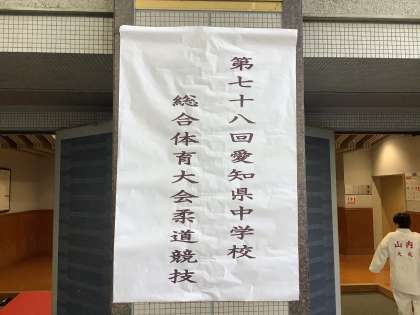 第七十八回愛知県中学校
総合体育大会柔道競技
山内